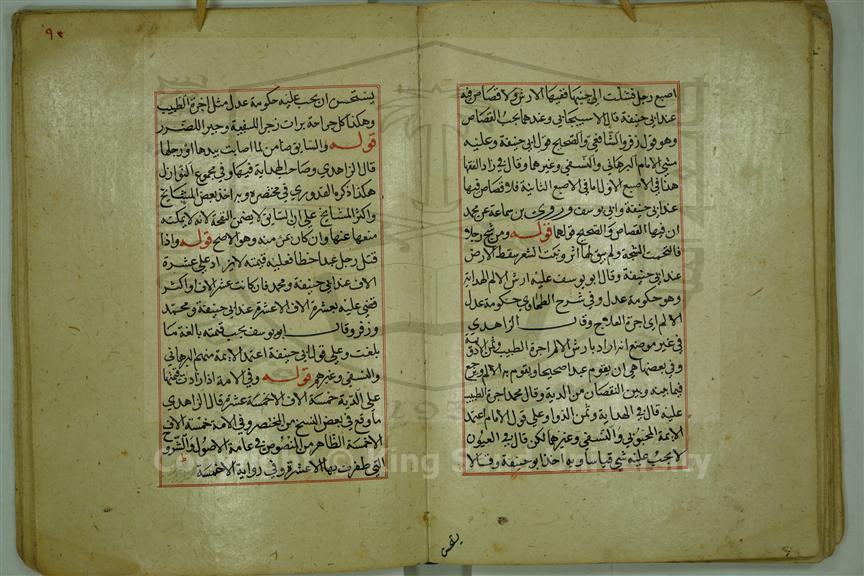 اصبع رجل فشلت الى جنبها ففيها الارش ولا قصاص فيه
عند ابي حنيفة قال الاسبيجابي وعندهما يجب القصاص
وهو قول زفر والشافعي والصحيح قول ابي حنيفة وعليه
مشى الامام البرهاني والنسفي وغيرهما وقال في زاد الفقها
هذا في الاصبع الاول اما في الاصبع الثانية فلا قصاص فيها
عند ابي حنيفة وابي يوسف وروى بن سماعة عن محمد
ان فيها القصاص والصحيح قولهما قوله ومن شج رجلا
فالتحمت الشجة ولم يبق لها اثر ونبت الشعر سقط الارش
عند ابي حنيفة وقال ابو يوسف عليه ارش الالم الهداية
وهو حكومة عدل وفي شرح الطحاوي حكومة عدل
الالم اي اجرة العلاج وقال الزاهدي
في غير موضع انه اراد بارش الالم اجرة الطبيب وثمن الادوية
وفي بعضها هي ان يقوم عبدا صحيحا ويقوم به الالم ويرجع
فيما بينه وبين النقصان من الدية وقال محمد اجرة الطبيب
عليه قال في الهداية وثمن الدوا وعلى قول الامام اعتمد
الايمة المحبوبي والنسفي وغيرهما لكن قال في العيون
لا يجب عليه شي قياسا وبه اخذ ابو حنيفة وقالا
يستحسن
٩٢
يستحسن ان يجب عليه حكومة عدل مثل اجرة الطبيب
وهكذا كل جراحة برات زجر اللسفيه وجبر اللضرر
قوله والسابق ضامن لما اصابت بيدها او رجلها
قال الزاهدي وصاحب الهداية فيها وفي مجموع النوازل
هكذا ذكره القدوري في مختصره وبه اخذ بعض المشايخ
واكثر المشايخ على ان السابق لا يضمن النفحة لانه لا يمكنه
منعها عنها وان كان عن منه وهو الاصح قوله واذا
قتل رجل عبدا خطا فعليه قيمته لا يزاد على عشرة
الاف عند ابي حنيفة ومحمد فان كانت عشر الاف او اكثر
قضي عليه بعشرة الاف الا عشرة عند ابي حنيفة ومحمد
وزفر وقال ابو يوسف يجب قيمته بالغة ما
بلغت وعلى قول ابي حنيفة اعتمد الايمة منهم البرهاني
والنسفي وغيرهم قوله وفي الامة اذا زادت قيمتها
على الدية خمسة الاف الا خمسة عشرة قال الزاهدي
ما وقع في بعض النسخ من المختصر وفي الامة خمسة الاف
الا خمسة الظاهر من النصوص في عامة الاصول والشروح
التي ظفرت بها الا عشرة وفي رواية الا خمسة
Copyright © King Saud University